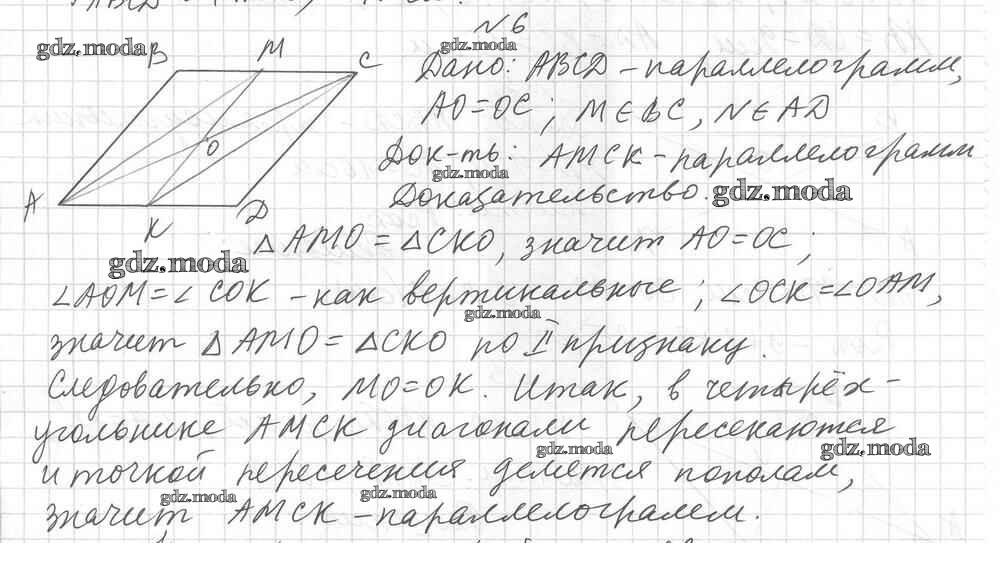 №6
gdz.moda
B M C
gdz.moda
Дано: ABCD – параллелограмм,
AO=OC; M∈BC, N∈AD
O
Док-ть: AMCK – параллелограмм
gdz.moda
Доказательство. gdz.moda
A K D
△AMO = △CKO, значит AO=OC;
gdz.moda
∠AOM=∠COK – как вертикальные; ∠OCK=∠OAM,
gdz.moda
значит △AMO = △CKO по II признаку.
Следовательно, MO=OK. Итак, в четырёх-
угольнике AMCK диагонали пересекаются
gdz.moda gdz.moda
и точкой пересечения делятся пополам,
gdz.moda gdz.moda
значит, AMCK – параллелограмм.